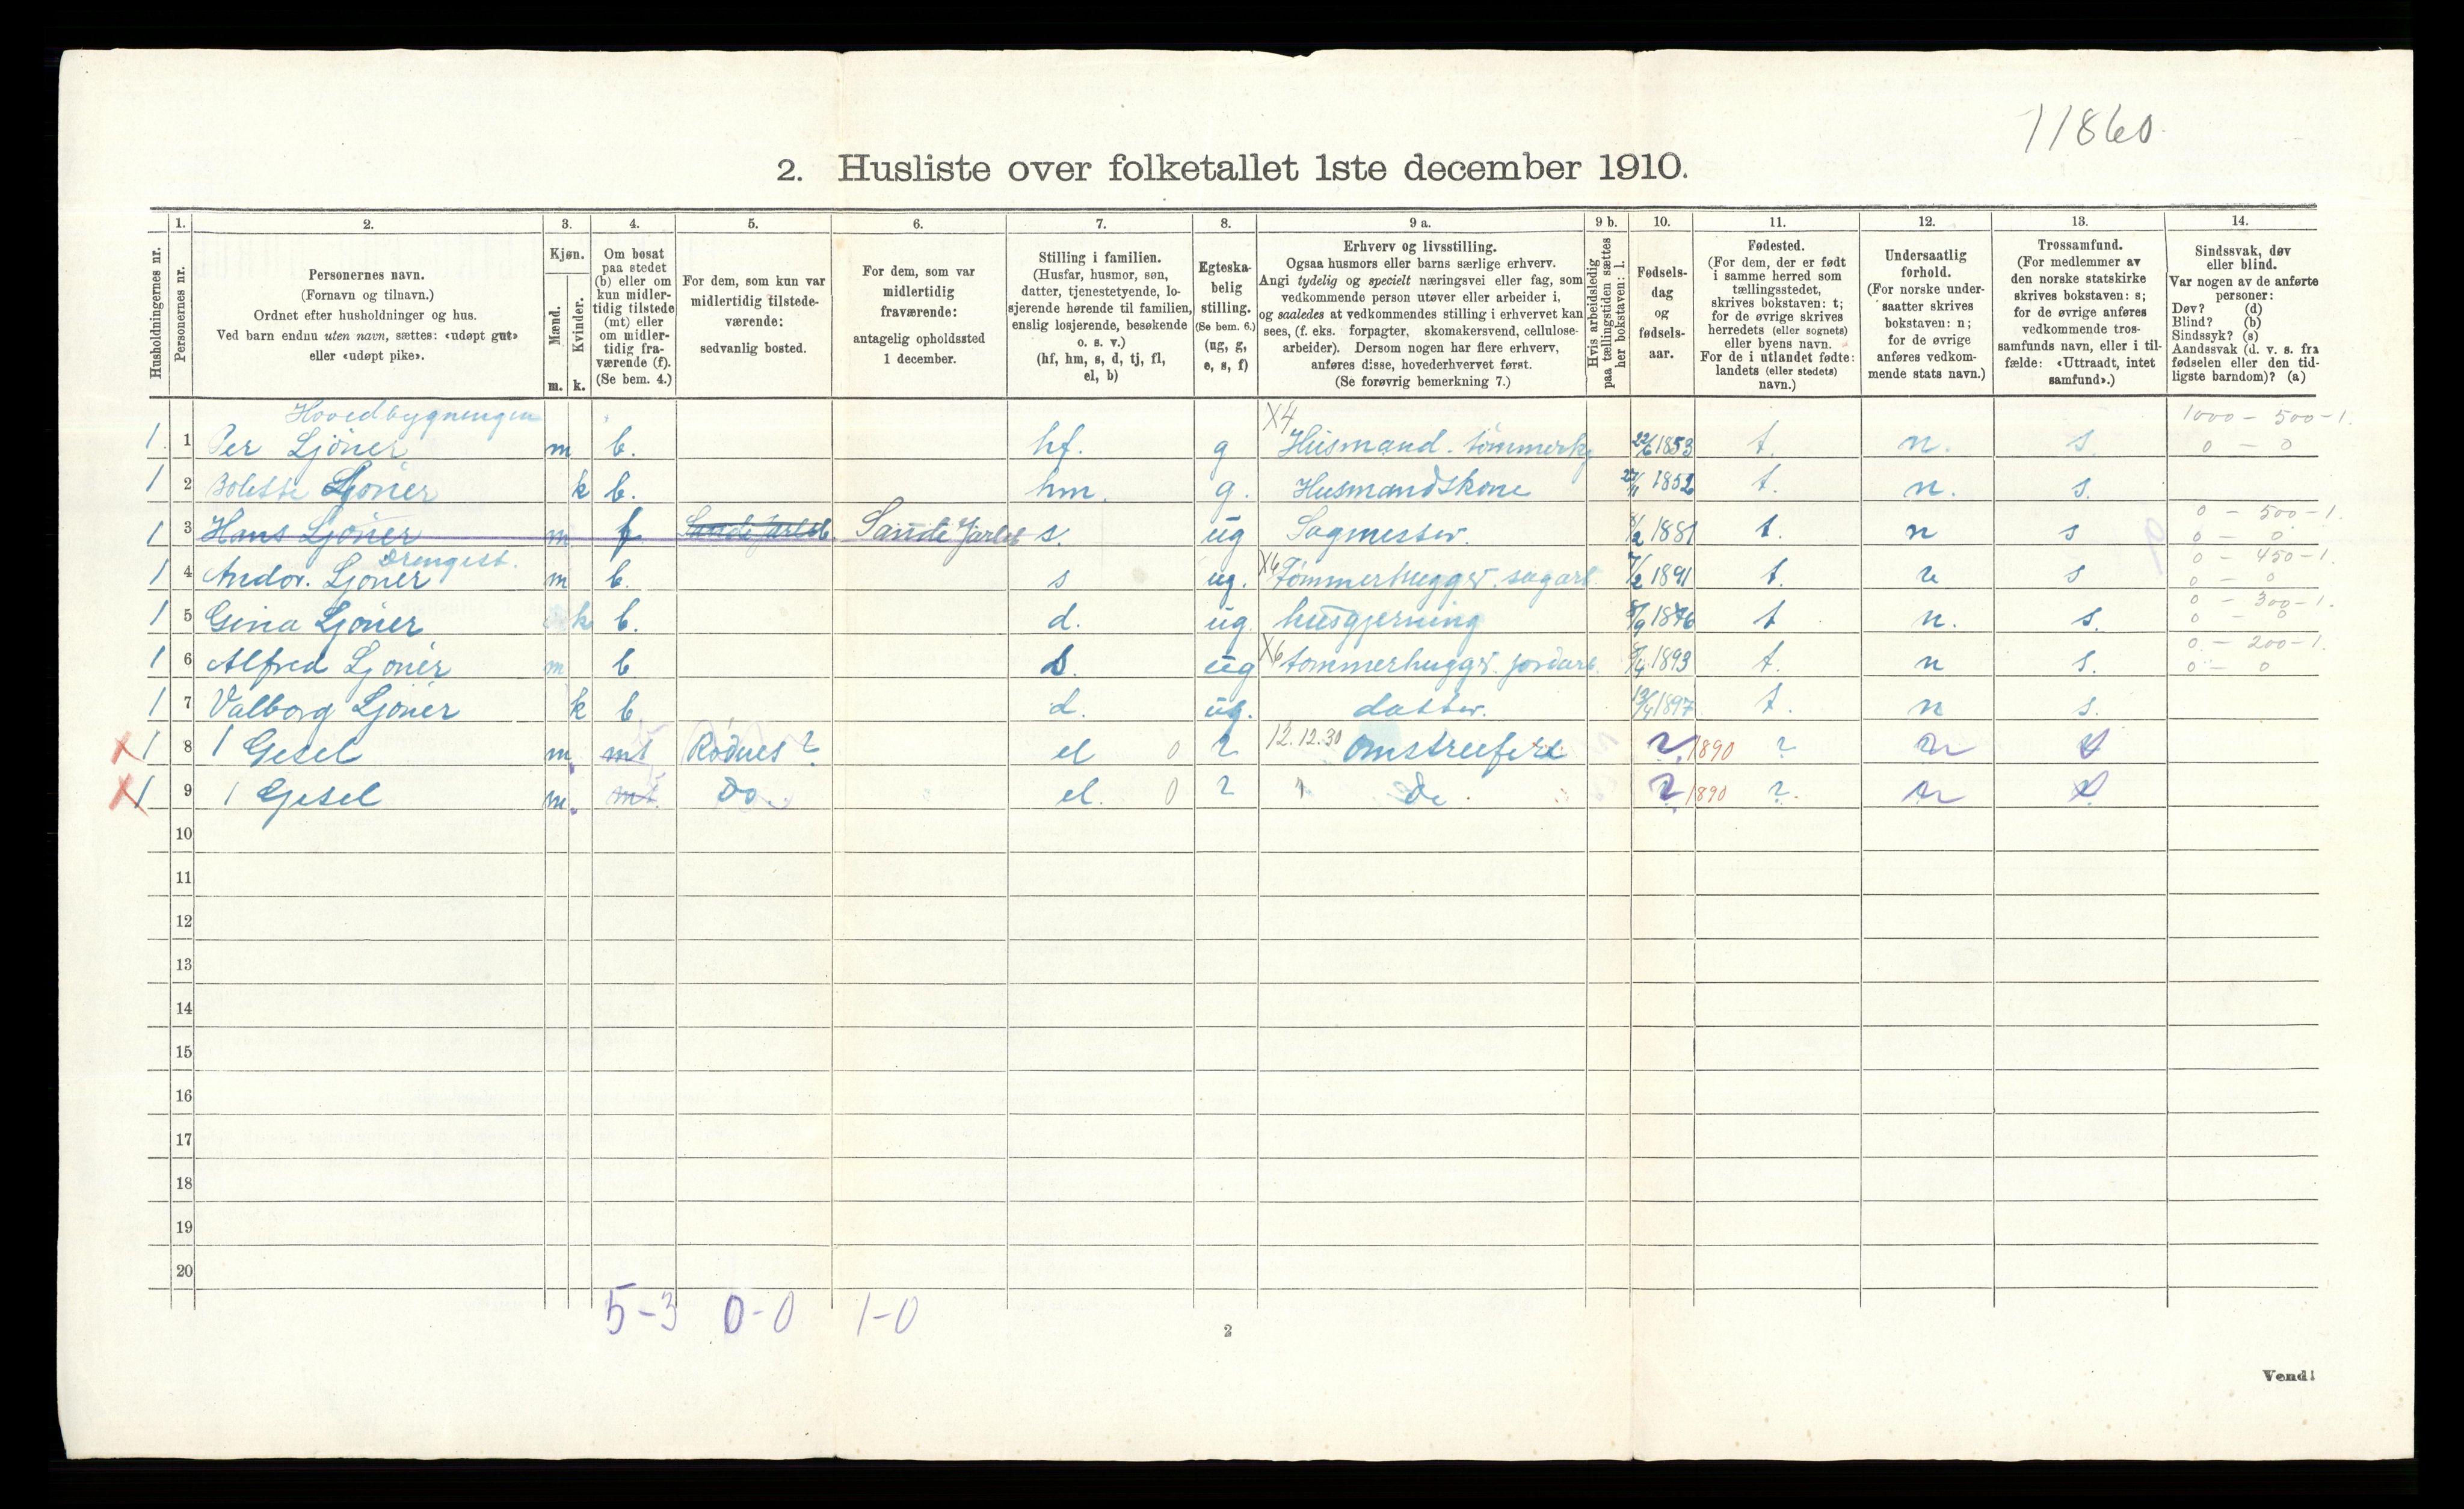 11860
2. Husliste over folketallet 1ste december 1910.
Husholdningernes nr.
1.
Personernes nr.
2.
Personernes navn.
(Fornavn og tilnavn.)
Ordnet efter husholdninger og hus.
Ved barn endnu uten navn, sættes: «udøpt gut»
eller «udøpt pike».
3.
Kjøn.
Mænd.
Kvinder.
m. k.
4.
Om bosat
paa stedet
(b) eller om
kun midler-
tidig tilstede
(mt) eller
om midler-
tidig fra-
værende (f).
(Se bem. 4.)
5.
For dem, som kun var
midlertidig tilstede-
værende:
sedvanlig bosted.
6.
For dem, som var
midlertidig
fraværende:
antagelig opholdssted
1 december.
7.
Stilling i familien.
(Husfar, husmor, søn,
datter, tjenestetyende, lo-
sjerende hørende til familien,
enslig losjerende, besøkende
o. s. v.)
(hf, hm, s, d, tj, fl,
el, b)
8.
Egteska-
belig
stilling.
(Se bem. 6.)
(ug, g,
e, s, f)
9 a.
Erhverv og livsstilling.
Ogsaa husmors eller barns særlige erhverv.
Angi tydelig og specielt næringsvei eller fag, som
vedkommende person utøver eller arbeider i,
og saaledes at vedkommendes stilling i erhvervet kan
sees, (f. eks. forpagter, skomakersvend, cellulose-
arbeider). Dersom nogen har flere erhverv,
anføres disse, hovederhvervet først.
(Se forøvrig bemerkning 7.)
9 b.
Hvis arbeidsledig
paa tællingstiden sættes
her bokstaven: l.
10.
Fødsels-
dag
og
fødsels-
aar.
11.
Fødested.
(For dem, der er født
i samme herred som
tællingsstedet,
skrives bokstaven: t;
for de øvrige skrives
herredets (eller sognets)
eller byens navn.
For de i utlandet fødte:
landets (eller stedets)
navn.)
12.
Undersaatlig
forhold.
(For norske under-
saatter skrives
bokstaven: n;
for de øvrige
anføres vedkom-
mende stats navn.)
13.
Trossamfund.
(For medlemmer av
den norske statskirke
skrives bokstaven: s;
for de øvrige anføres
vedkommende tros-
samfunds navn, eller i til-
fælde: «Uttraadt, intet
samfund».)
14.
Sindssvak, døv
eller blind.
Var nogen av de anførte
personer:
Døv? (d)
Blind? (b)
Sindssyk? (s)
Aandssvak (d. v. s. fra
fødselen eller den tid-
ligste barndom)? (a)
Hovedbygningen X4 1000 - 500 - 1.
1. 1 Per Ljöner m b. hf. g Husmand. tömmerkj 22/6 1853 t. n. s. 0 - 0
1 2 Bolette Ljöner k b. hm. g. Husmandskone 27/11 1852 t. n. s.
0 - 500 - 1.
1 3 Hans Ljöner m f Sande Jarlsb. Sande Jarlsb s. ug Sagmester. 8/2 1881 t. n s 0 - 0
Drengest. 0 - 450 - 1.
1 4 Andor. Ljöner m b. s ug. X6 Tömmerhugger. sagarb. 7/2 1891 t. n s 0 - 0
0 - 300 - 1.
1 5 Gina Ljöner k b. d. ug. husgjerning 8/9 1876 t n. s. 0 - 0
0 - 200 - 1.
1 6 Alfred Ljöner m b s. ug X6 tommerhugger. jordarb. 1893 t. n s. 0 - 0
1 7 Valborg Ljöner k b d. ug. datter. 13/4 1897 t. n s.
X 1 8 1 Gesel m. mt Rödnes? el 0 ? 12.12.30 Omstreifere ? 1890 ? n s
X 1 9 1 Gesel m. mt. Do. el. 0 ? " Do. ? 1890 ?. n s
10
11
12
13
14
15
16
17
18
19
20
5-3 0-0 1-0
2
Vend!